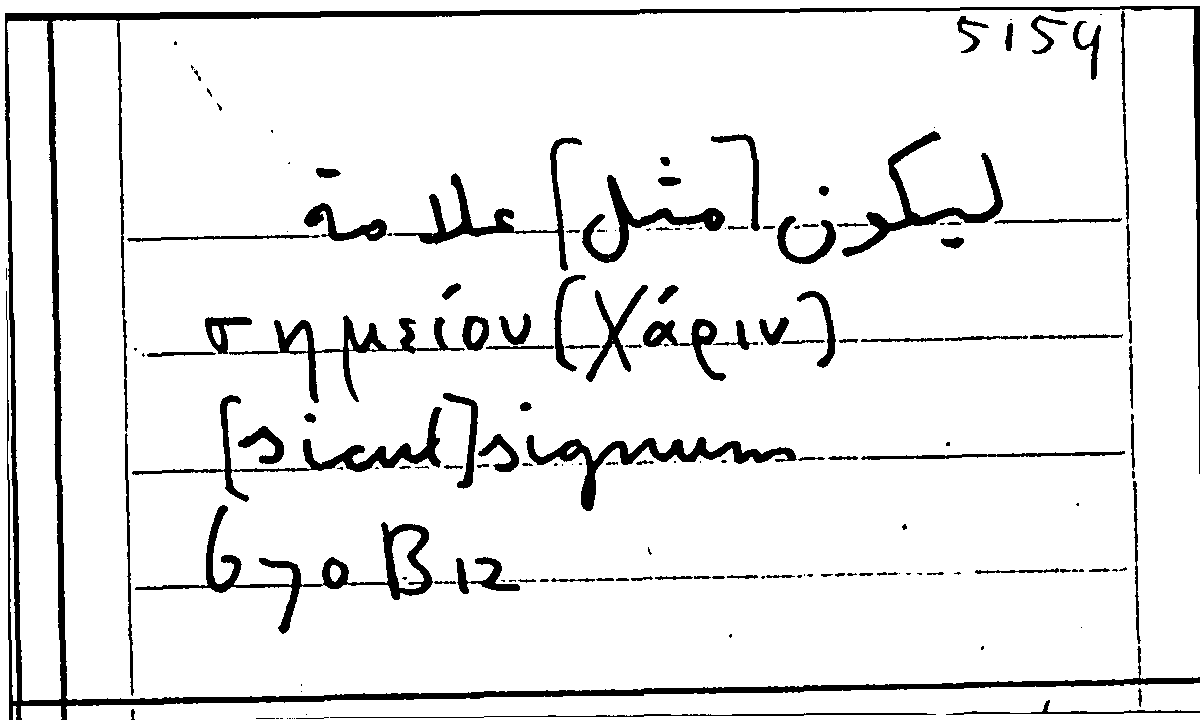 5154
ليكون [مثل] علامة
σημείου (χάριν)
[sicut] signum
670 B 12